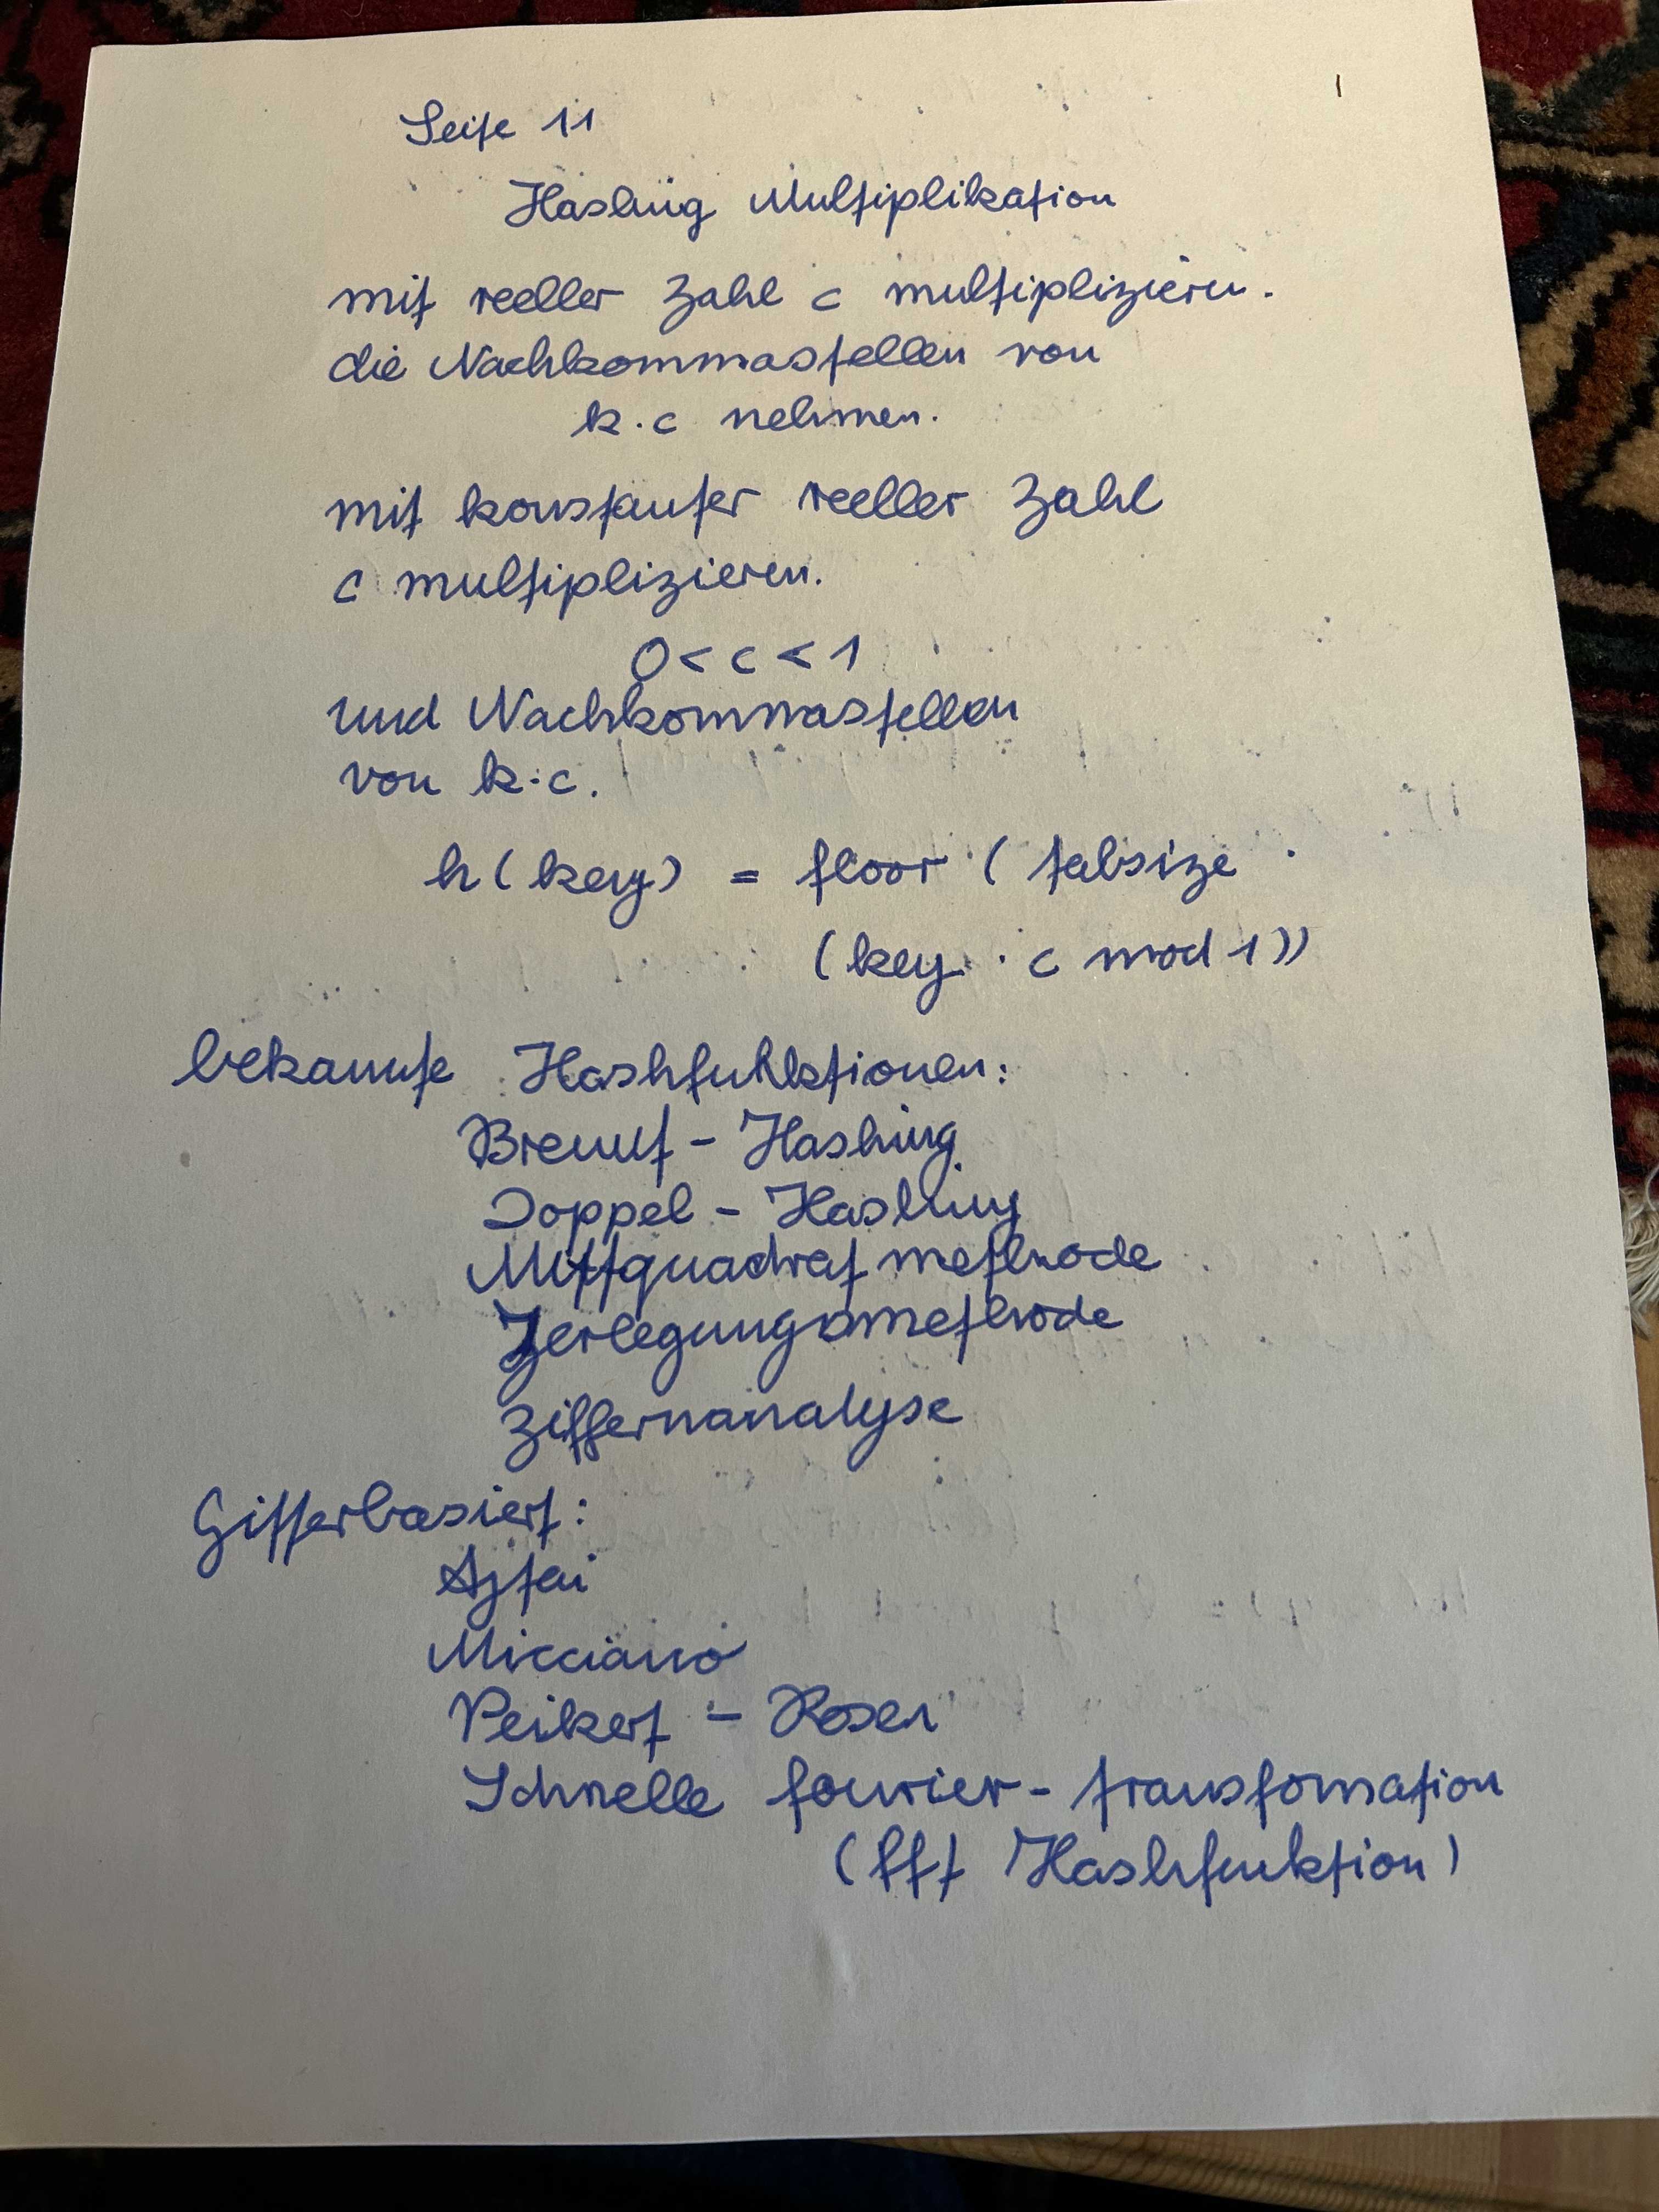 Seite 11
Hashing Multiplikation
mit reeller Zahl c multiplizieren.
die Nachkommastellen von
k·c nehmen.
mit konstanter reeller Zahl
c multiplizieren.
0 < c < 1
und Nachkommastellen
von k·c.
h(key) = floor (tabsize ·
(key · c mod 1))
bekannte Hashfunktionen:
Brent - Hashing
Doppel - Hashing
Mittquadratmethode
Zerlegungsmethode
Ziffernanalyse
Gitterbasiert:
Ajtai
Micciano
Peikert - Rosen
Schnelle fourier - transfomation
(fft Hashfunktion)